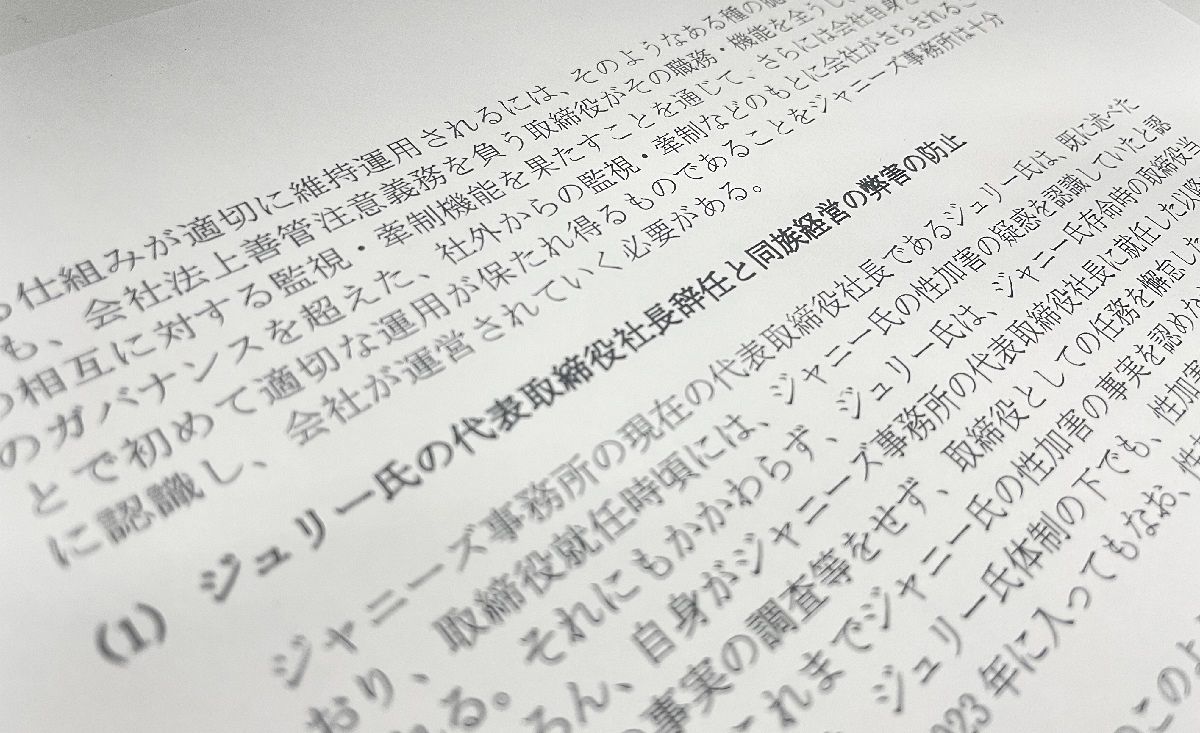 仕組みが適切に維持運用されるには、そのようなある種の
も、会社法上善管注意義務を負う取締役がその職務・機能を全うし、
相互に対する監視・牽制機能を果たすことを通じて、さらには会社自身
のガバナンスを超えた、社外からの監視・牽制などのもとに会社がさらされるこ
とで初めて適切な運用が保たれ得るものであることをジャニーズ事務所は十分
に認識し、会社が運営されていく必要がある。
(1) ジュリー氏の代表取締役社長辞任と同族経営の弊害の防止
ジャニーズ事務所の現在の代表取締役社長であるジュリー氏は、既に述べた
おり、取締役就任時頃には、ジャニー氏の性加害の疑惑を認識していたと認
れる。それにもかかわらず、ジュリー氏は、ジャニー氏存命時の取締役当
ろん、自身がジャニーズ事務所の代表取締役社長に就任した以降
の事実の調査等をせず、取締役としての任務を懈怠した
これまでジャニー氏の性加害の事実を認めな
ジュリー氏体制の下でも、性加害
023 年に入ってもなお、性
のこのよ